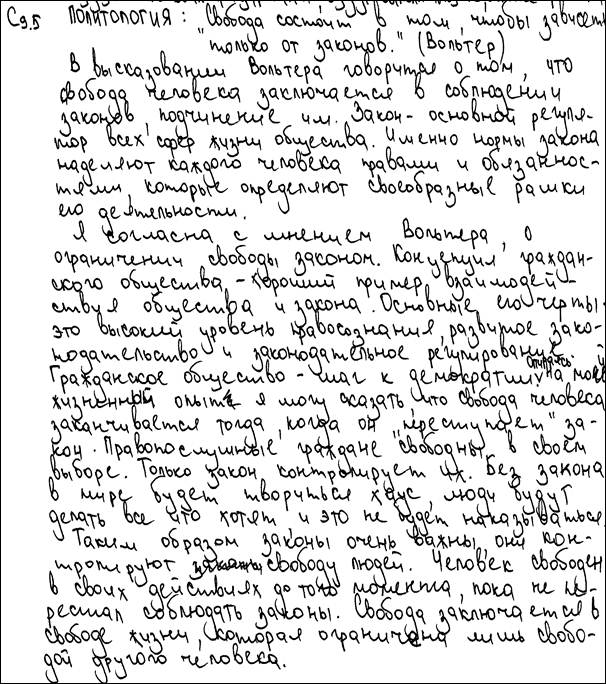 С9.5 ПОЛИТОЛОГИЯ: "Свобода состоит в том, чтобы зависеть
только от законов." (Вольтер)
В высказывании Вольтера говорится о том, что
свобода человека заключается в соблюдении
законов, подчинение им. Закон - основной регуля-
тор всех сфер жизни общества. Именно нормы закона
наделяют каждого человека правами и обязаннос-
тями, которые определяют своеобразные рамки
его деятельности.
Я согласна с мнением Вольтера, о
ограничении свободы законом. Концепция граждан-
ского общества - хороший пример взаимодей-
ствуя общества и закона. Основные его черты:
это высокий уровень правосознания, развитое зако-
нодательство и законодательное регулирование.
Гражданское общество - шаг к демократии. Опираясь на мой
жизненный опыт я могу сказать, что свобода человека
заканчивается тогда, когда он "переступает" за-
кон. Правопослушные граждане "свободны" в своем
выборе. Только закон контролирует их. Без закона
в мире будет твориться хаус, люди будут
делать все что хотят и это не будет наказываться
Таким образом законы очень важны, они кон-
тролируют свободу людей. Человек свободен
в своих действиях до того момента, пока не пе-
рестал соблюдать законы. Свобода заключается в
свободе жизни, которая ограничена лишь свобо-
дой другого человека.